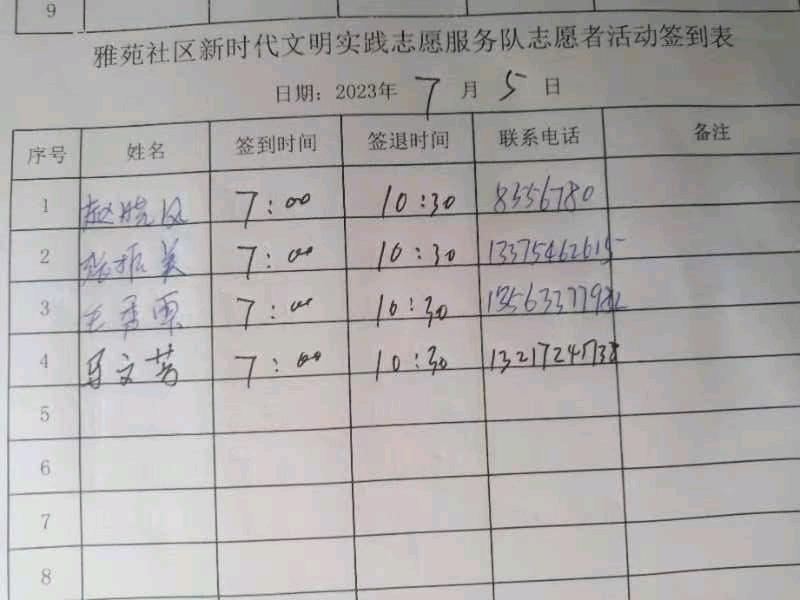 9
雅苑社区新时代文明实践志愿服务队志愿者活动签到表
日期：2023年 7 月 5 日
序号 姓名 签到时间 签退时间 联系电话 备注
1 赵晓风 7:00 10:30 8356780
2 张振美 7:00 10:30 13375462615
3 王秀栗 7:00 10:30
4 马文芳 7:00 10:30 13217241738
5
6
7
8